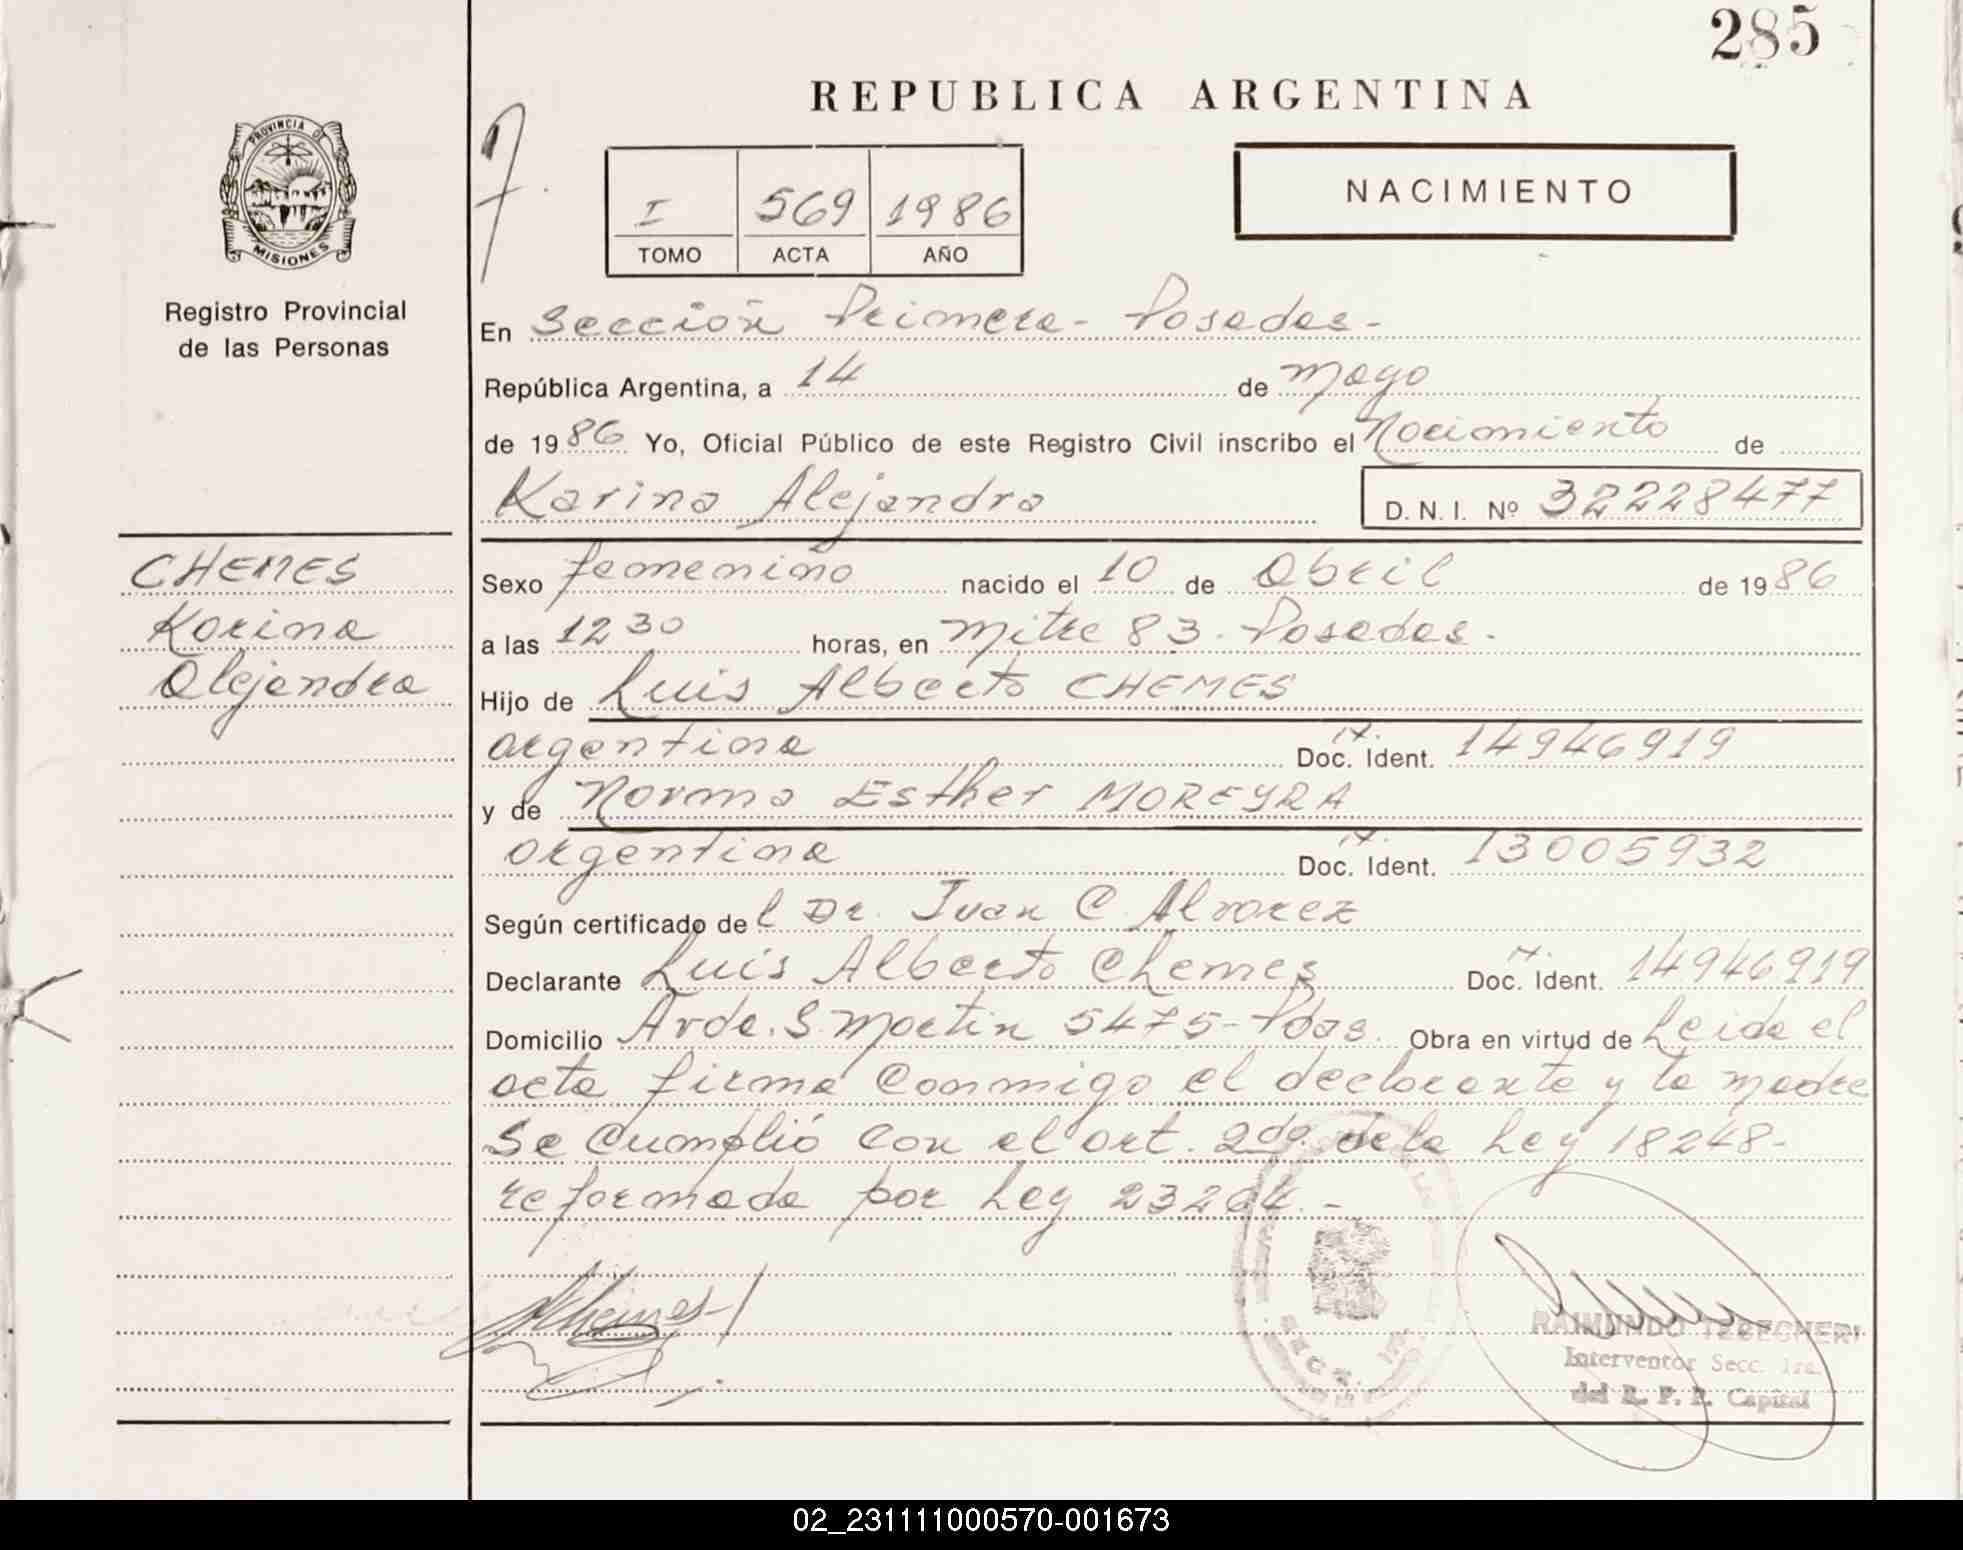 285
REPUBLICA ARGENTINA
PROVINCIA DE
MISIONES
Registro Provincial
de las Personas
I 569 1986
TOMO ACTA AÑO
NACIMIENTO
En Sección Primera - Posadas -
República Argentina, a 14 de Mayo
de 1986 Yo, Oficial Público de este Registro Civil inscribo el Nacimiento de
Karina Alejandra D. N. I. Nº 32228477
CHEMES
Karina
Alejandra
Sexo femenino nacido el 10 de Abril de 1986
a las 12 30 horas, en Mitre 83 - Posadas -
Hijo de Luis Alberto CHEMES
argentina Doc. Ident. 14946919
y de Norma Esther MOREYRA
argentina Doc. Ident. 13005932
Según certificado del Dr. Juan C. Alvarez
Declarante Luis Alberto Chemes Doc. Ident. 14946919
Domicilio Avda. S. Martin 5475 - Pdas. Obra en virtud de Leida el
acta firma conmigo el declarante y la madre
Se cumplió con el art. 2do. de la Ley 18248 -
reformada por Ley 23264. -
RAIMUNDO
Interventor Secc. 1ra.
del R. P. P. Capital
02_231111000570-001673